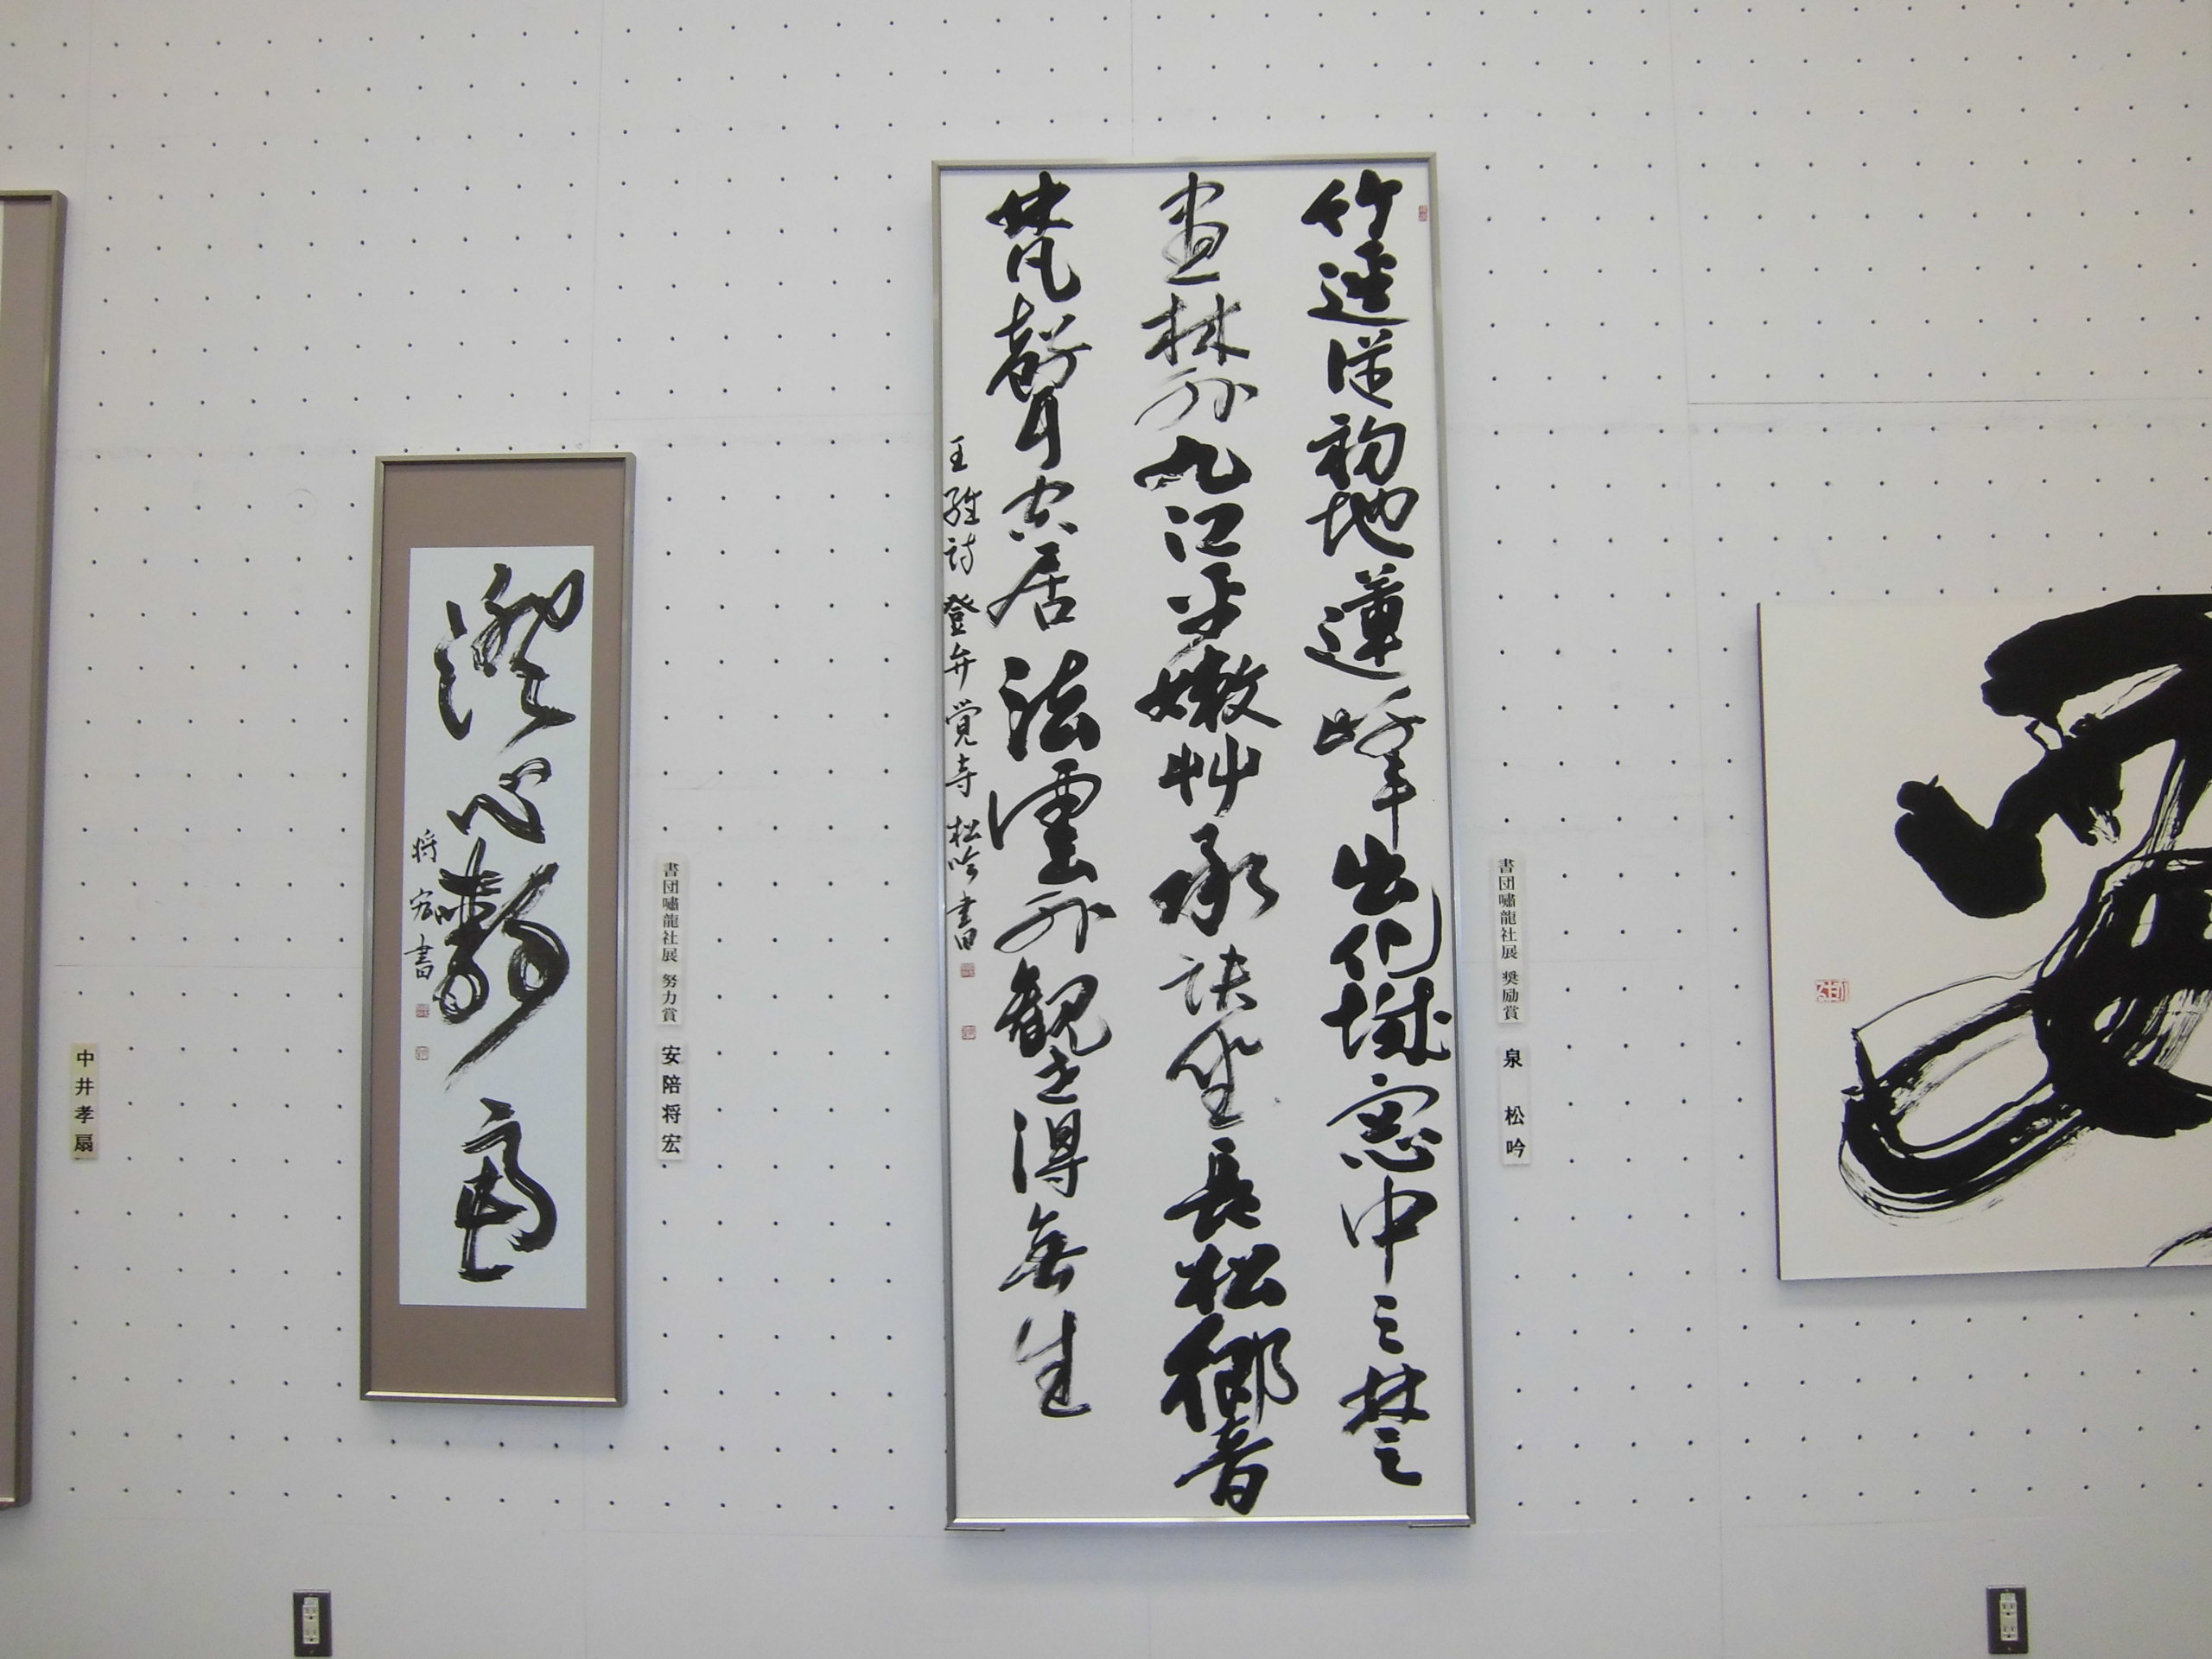 竹逕従初地蓮峰出化城窓中三楚
盡林外九江平嫩艸承趺坐長松響
梵聲空居法雲外観世得無生
王維詩 登弁覚寺 松吟書
書団嘯龍社展 奨励賞
泉 松吟
澄心
将宏書
書団嘯龍社展 努力賞
安陪将宏
中井孝扇